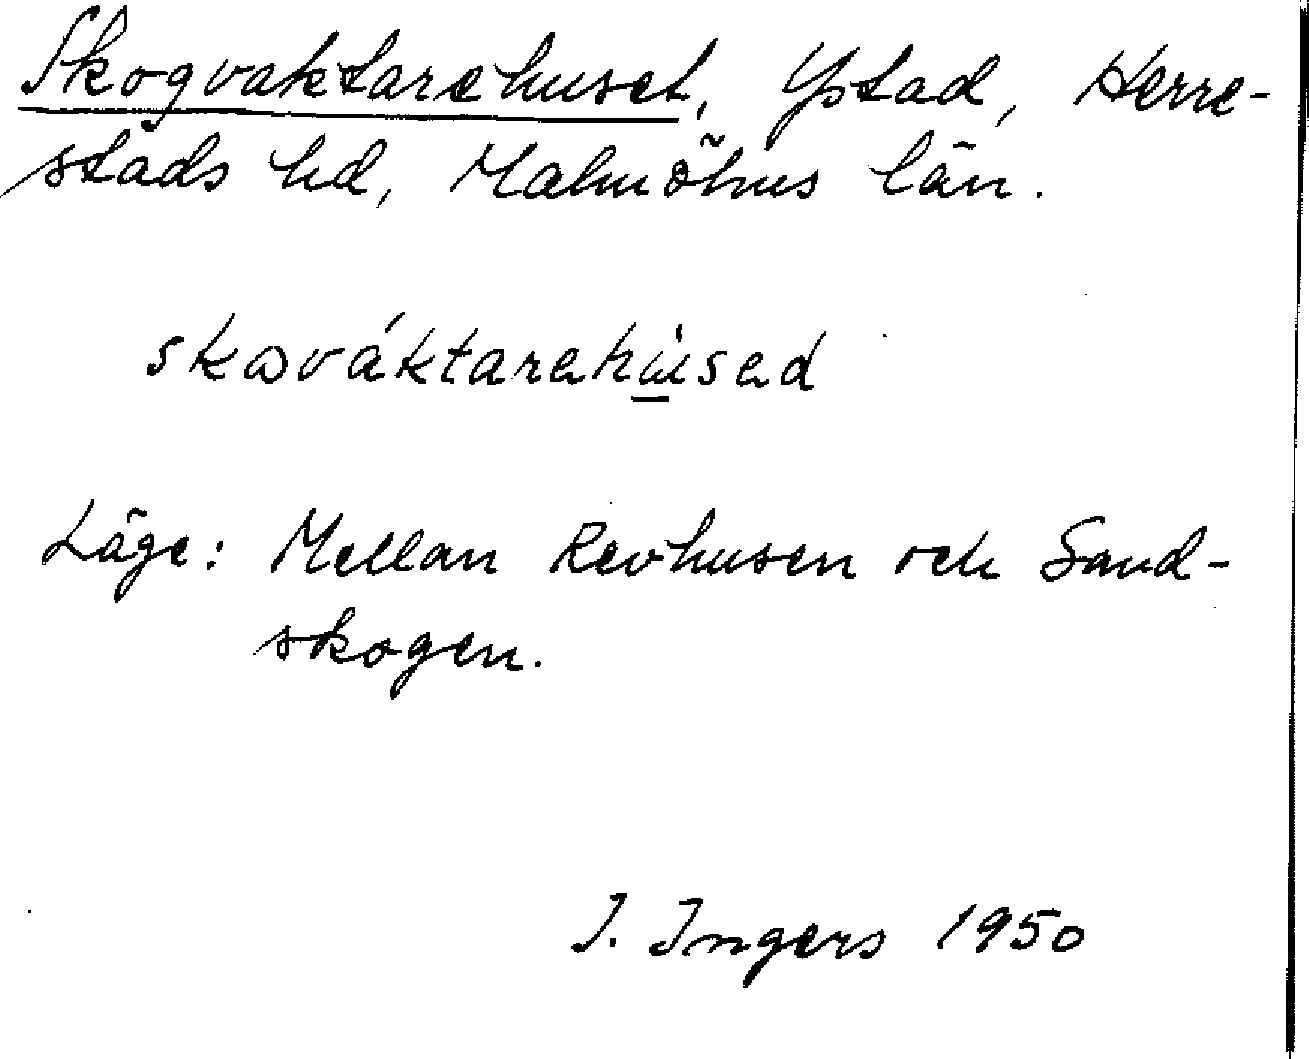 Skogvaktarehuset, Ystad, Herre-
stads hd, Malmöhus län.
Läge: Mellan Revhusen och Sand-
skogen.
I. Ingers 1950